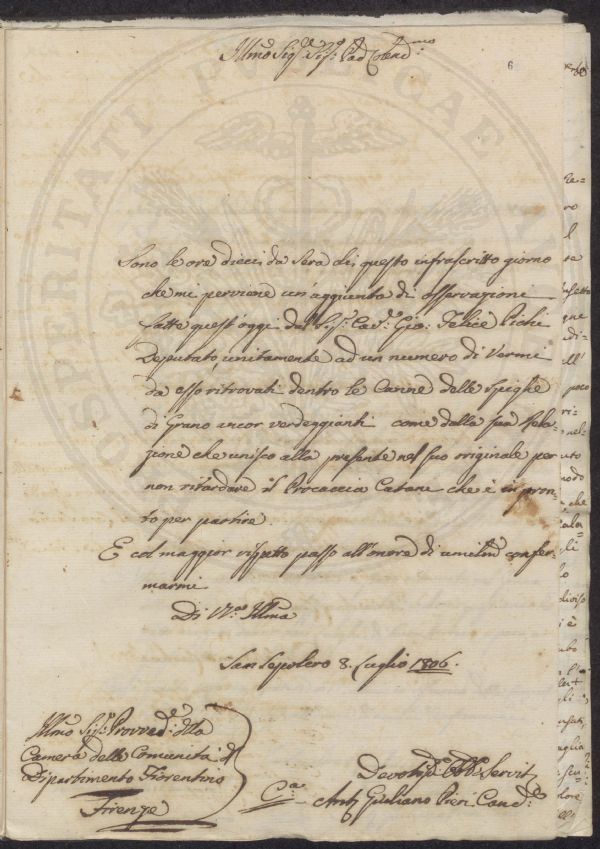 Illmo Sigre Sigre Pad. Colendmo
6
Sono le ore dieci da Sera di questo infrascritto giorno
che mi perviene un'aggiunta di osservazioni
fatte quest'oggi dal Sigr. Cavr. Gio: Felice Pichi
Deputato, unitamente ad un numero di Vermi
da esso ritrovati dentro le Canne delle Spighe
di Grano ancor verdeggianti come dalla sua Rela-
zione che unisco alla presente nel suo originale per
non ritardare il Procaccia Catani che è in pron-
to per partire.
E col maggior rispetto passo all'onore di umilmte confer-
marmi
Di V.S. Illma
San Sepolcro 8. Luglio 1806.
Illmo Sigr. Provvedre della
Camera delle Comunità di
Dipartimento Fiorentino
Firenze
Ca
Devotmo Obbmo Servit
Anto Giuliano Pieri Cancre